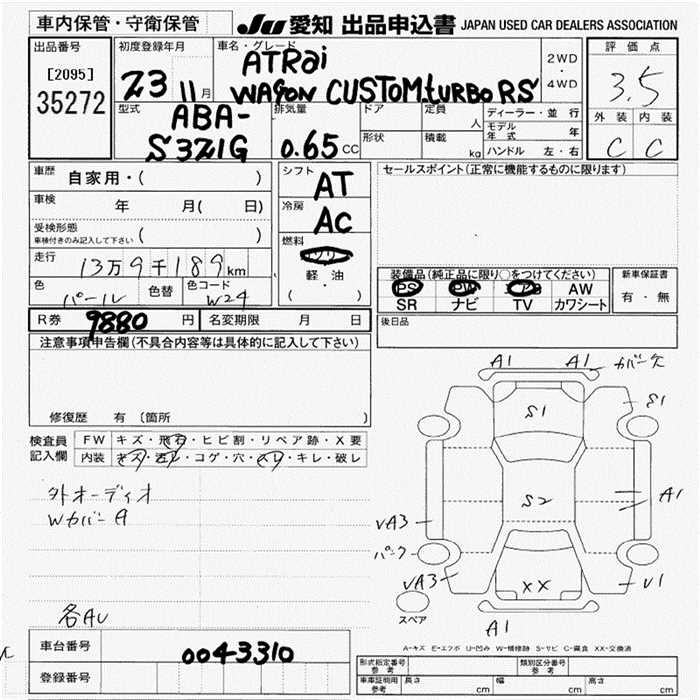 車内保管・守衛保管
JU 愛知 出品申込書 JAPAN USED CAR DEALERS ASSOCIATION
出品番号
[2095]
35272
初度登録年月
23 11月
車名・グレード
ATRai
WAGON CUSTOM turbo RS
2WD
・
4WD
評価点
3.5
外装 内装
C C
型式
ABA-
S321G
排気量
0.65 CC
ドア
定員
人
形状
積載
kg
ディーラー・並行
モデル年式 年
ハンドル 左・右
車歴
自家用・( )
車検
年 月( 日)
受検形態
車検付きのみ記入して下さい ( )
走行
13万9千189km
色
パール
色替
色コード
W24
シフト
AT
冷房
AC
燃料
軽油
(・)
セールスポイント(正常に機能するものに限ります)
装備品(純正品に限り○をつけてください)
PS PW エアB AW
SR ナビ TV カワシート
新車保証書
有・無
後日品
R券 9880 円
名変期限 月 日
注意事項申告欄(不具合内容等は具体的に記入して下さい)
修復歴 有 〔箇所 〕
検査員
記入欄
FW キズ・飛石・ヒビ割・リペア跡・X要
内装 キズ・汚レ・コゲ・穴・スレ・キレ・破レ
外オーディオ
WカバーA
各AU
A1 A1 カバー欠
S1
S1
S2
A1
VA3
パーク
VA3
XX
V1
A1
スペア
A-キズ E-エクボ U-凹み W-補修跡 S-サビ C-腐食 XX-交換済
車台番号
0043310
登録番号
形式指定番号
参考
類別区分番号
参考
車庫証明用
参考
長さ cm
幅 cm
高さ cm